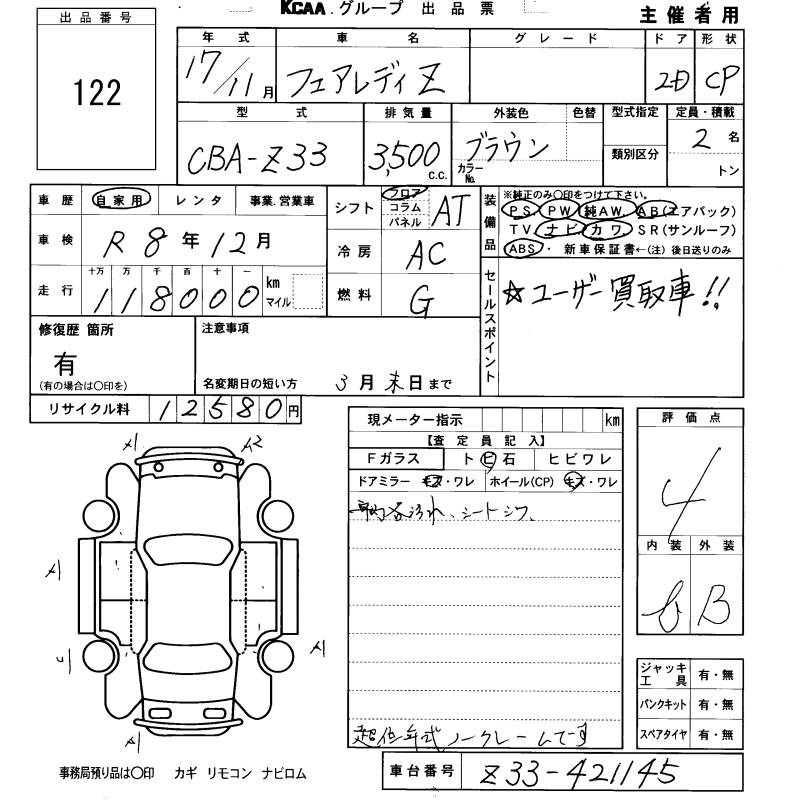 KCAA.グループ 出品票
主催者用
出品番号
122
年式 車名 グレード ドア 形状
17/11月 フェアレディZ 2D CP
型式 排気量 外装色 色替 型式指定 定員・積載
CBA-Z33 3,500 c.c. ブラウン カラーNo. 類別区分 2名
トン
車歴 自家用 レンタ 事業.営業車
シフト フロア コラム パネル AT
装備品 ※純正のみ〇印をつけて下さい。
PS PW 純AW. AB(エアバック)
TV ナビ カワ SR(サンルーフ)
ABS・ 新車保証書←(注) 後日送りのみ
車検 R8年12月
冷房 AC
走行 十万 万 千 百 十 一
118000 km マイル
燃料 G
セールスポイント
☆ユーザー買取車!!
修復歴 箇所
有
(有の場合は〇印を)
注意事項
名変期日の短い方 3月末日まで
リサイクル料 12580円
現メーター指示 km
【査定員記入】
Fガラス トビ石 ヒビワレ
ドアミラー キズ・ワレ ホイール(CP) キズ・ワレ
シートシワ、
超低年式ノークレームです
評価点
4
内装 外装
B
ジャッキ工具 有・無
パンクキット 有・無
スペアタイヤ 有・無
事務局預り品は〇印 カギ リモコン ナビロム
車台番号 Z33-421145